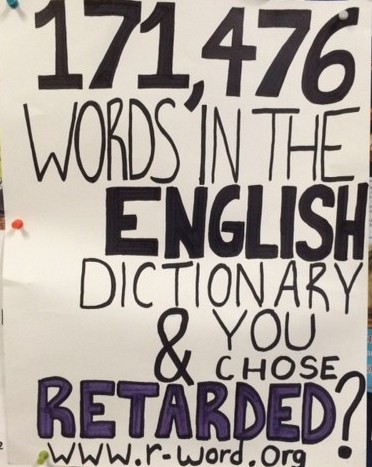 171,476
WORDS IN THE
ENGLISH
DICTIONARY
& YOU
CHOSE
RETARDED?
www.r-word.org